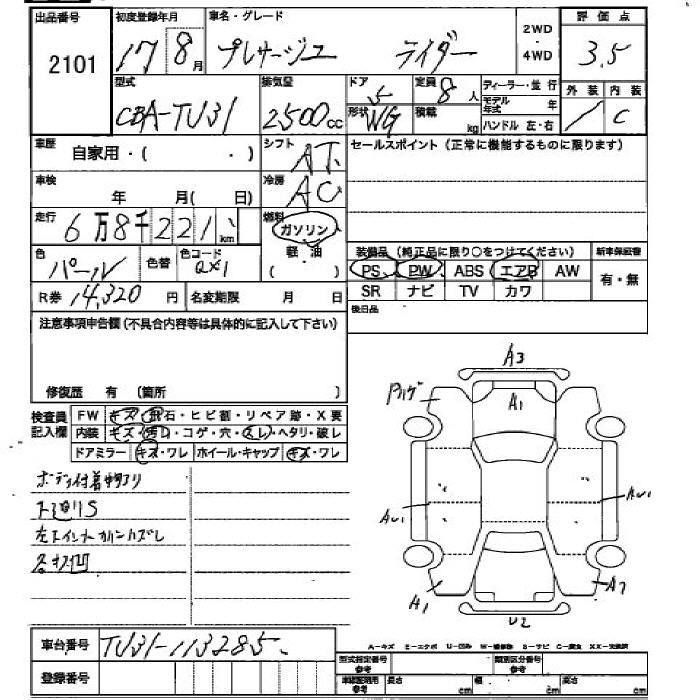 出品番号
2101
初度登録年月
17 8月
車名・グレード
プレサージュ ライダー
2WD
・
4WD
評価点
3.5
型式
CBA-TU31
排気量
2500cc
ドア
5
形状
WG
定員
8人
積載
kg
ディーラー・並行
モデル年式 年
ハンドル 左・右
外装 内装
/ C
車歴
自家用・( ・ )
シフト
AT
セールスポイント(正常に機能するものに限ります)
車検
年 月( 日)
冷房
AC
走行
6万8千221km
燃料
ガソリン
軽・油
( )
色
パール
色替
色コード
QX1
装備品(純正品に限り○をつけてください)
新車保証書
PS PW ABS エアB AW
SR ナビ TV カワ
有・無
R券 14,320円
名変期限 月 日
後日品
注意事項申告欄(不具合内容等は具体的に記入して下さい)
修復歴 有 (箇所 )
検査員記入欄
FW キズ・飛石・ヒビ割・リペア跡・X要
内装 キズ・汚れ・コゲ・穴・スレ・ヘタリ・破レ
ドアミラー キズ・ワレ ホイール・キャップ キズ・ワレ
A3
A1
AU1
AU1
A1
A2
U2
車台番号
TU31-113285
登録番号
A－キズ E－エクボ U－凹ミ W－補修跡 S－サビ C－腐食 XX－交換済
型式指定番号
参考
類別区分番号
参考
車検証明用
参考
長さ cm
幅 cm
高さ cm